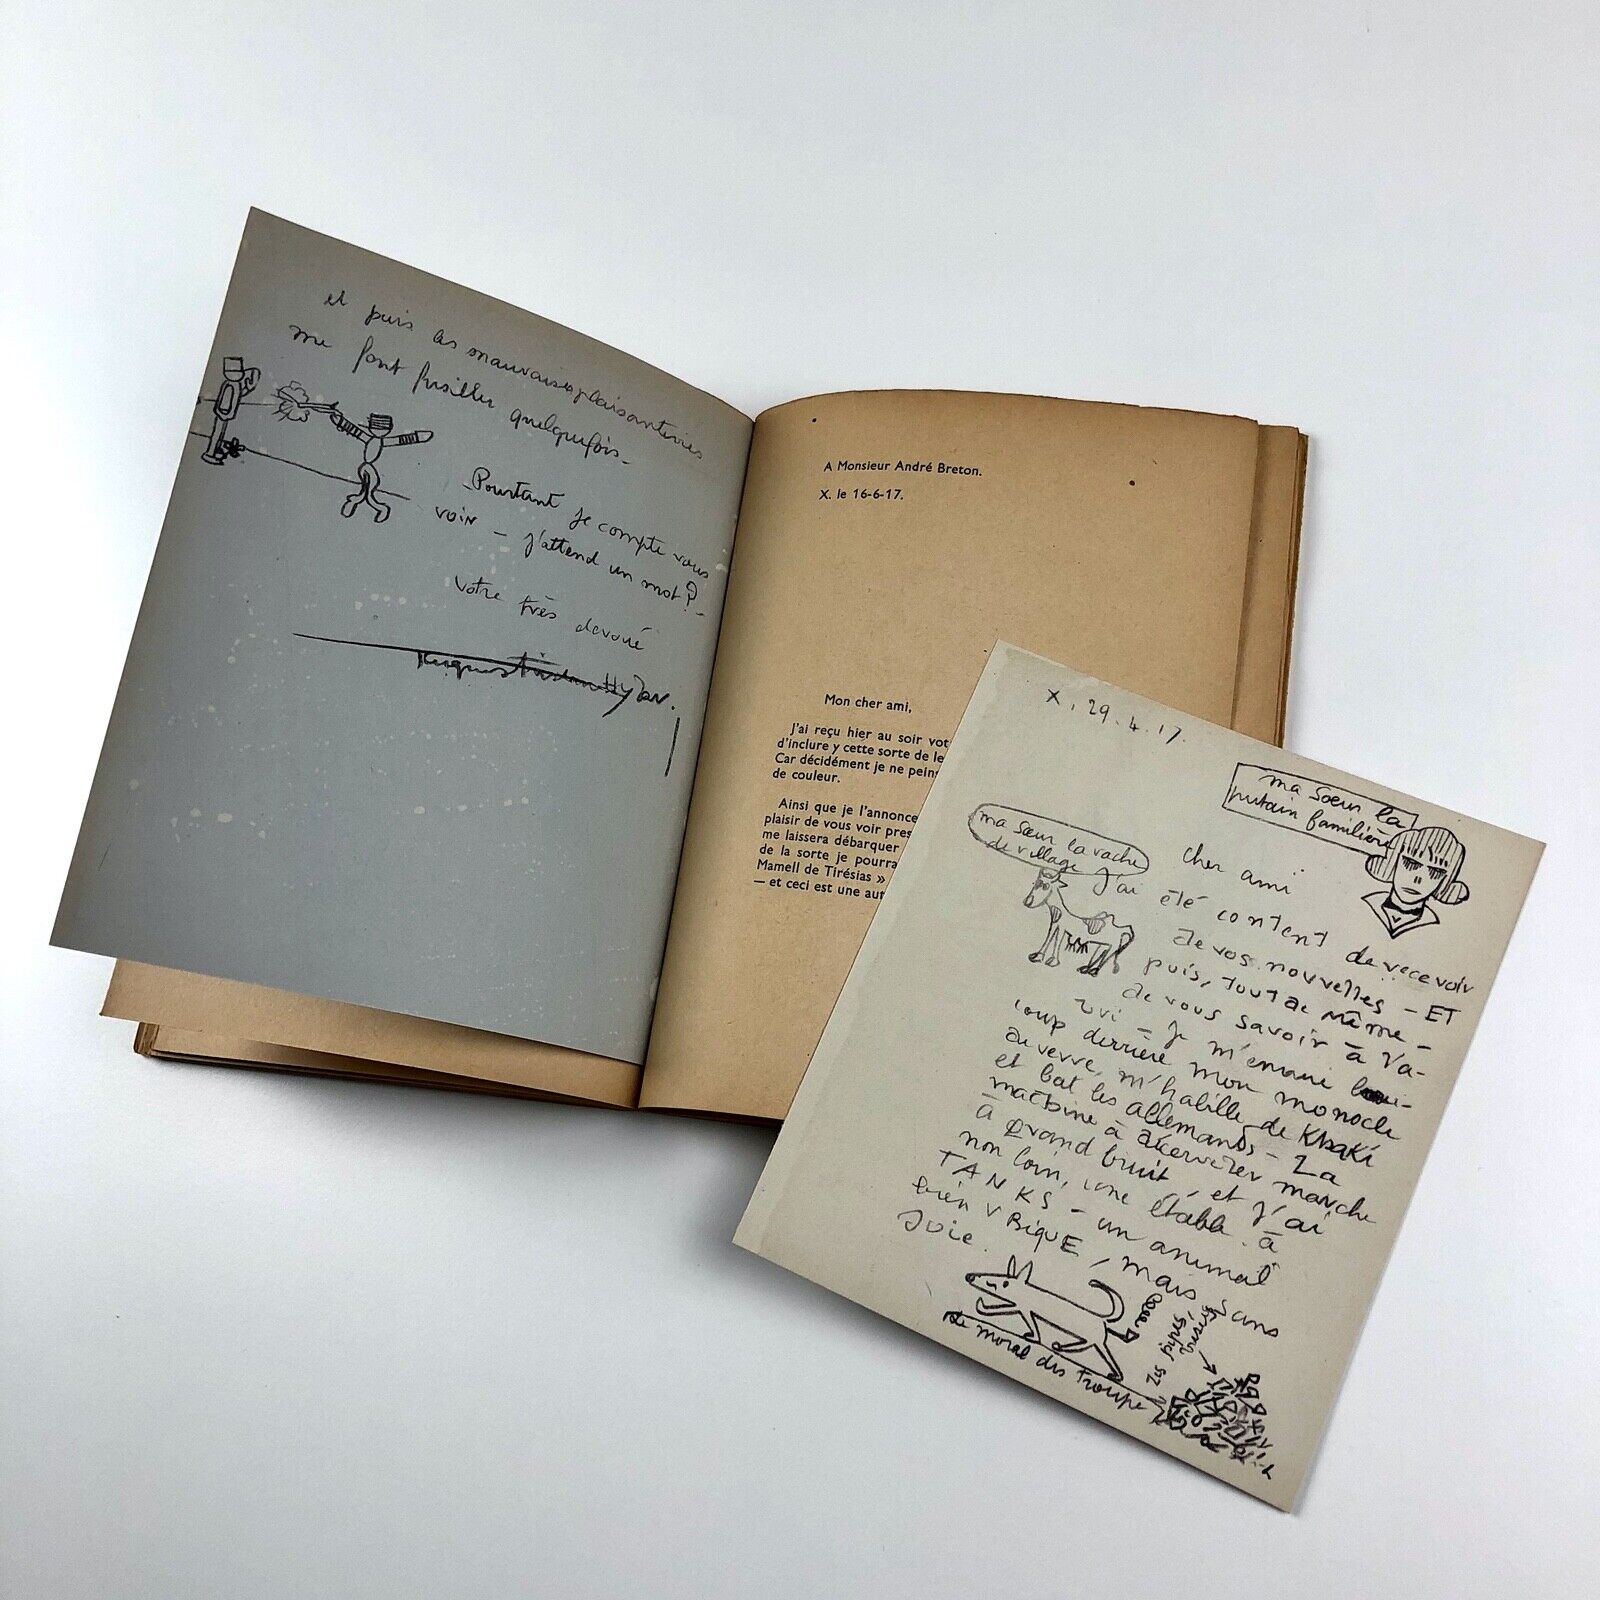 et puis les mauvaises plaisanteries
me font fusiller quelquefois_
Pourtant je compte vous
voir – j'attend un mot ?_
votre très devoué
A Monsieur André Breton.
X. le 16-6-17.
Mon cher ami,
J'ai reçu hier au soir vot
d'inclure y cette sorte de le
Car décidément je ne peins
de couleur.
Ainsi que je l'annonce
plaisir de vous voir pres
me laissera débarquer
de la sorte je pourra
Mamell de Tirésias »
— et ceci est une aut
X. 29.4.17.
ma sœur la
putain familière
ma sœur la vache
de village
Cher ami
J'ai été content de recevoir
de vos nouvelles – ET
puis, tout de même –
de vous savoir à Va-
Je m'ennuie
coup derrière mon monocle
de verre, m'habille de Khaki
et bat les Allemands – La
machine à décerveler marche
à grand bruit, et j'ai
non loin, une étable à
TANKS – un animal
bien UBiqUE, mais sans
joie.
Le moral des Troupe
Les pipes,